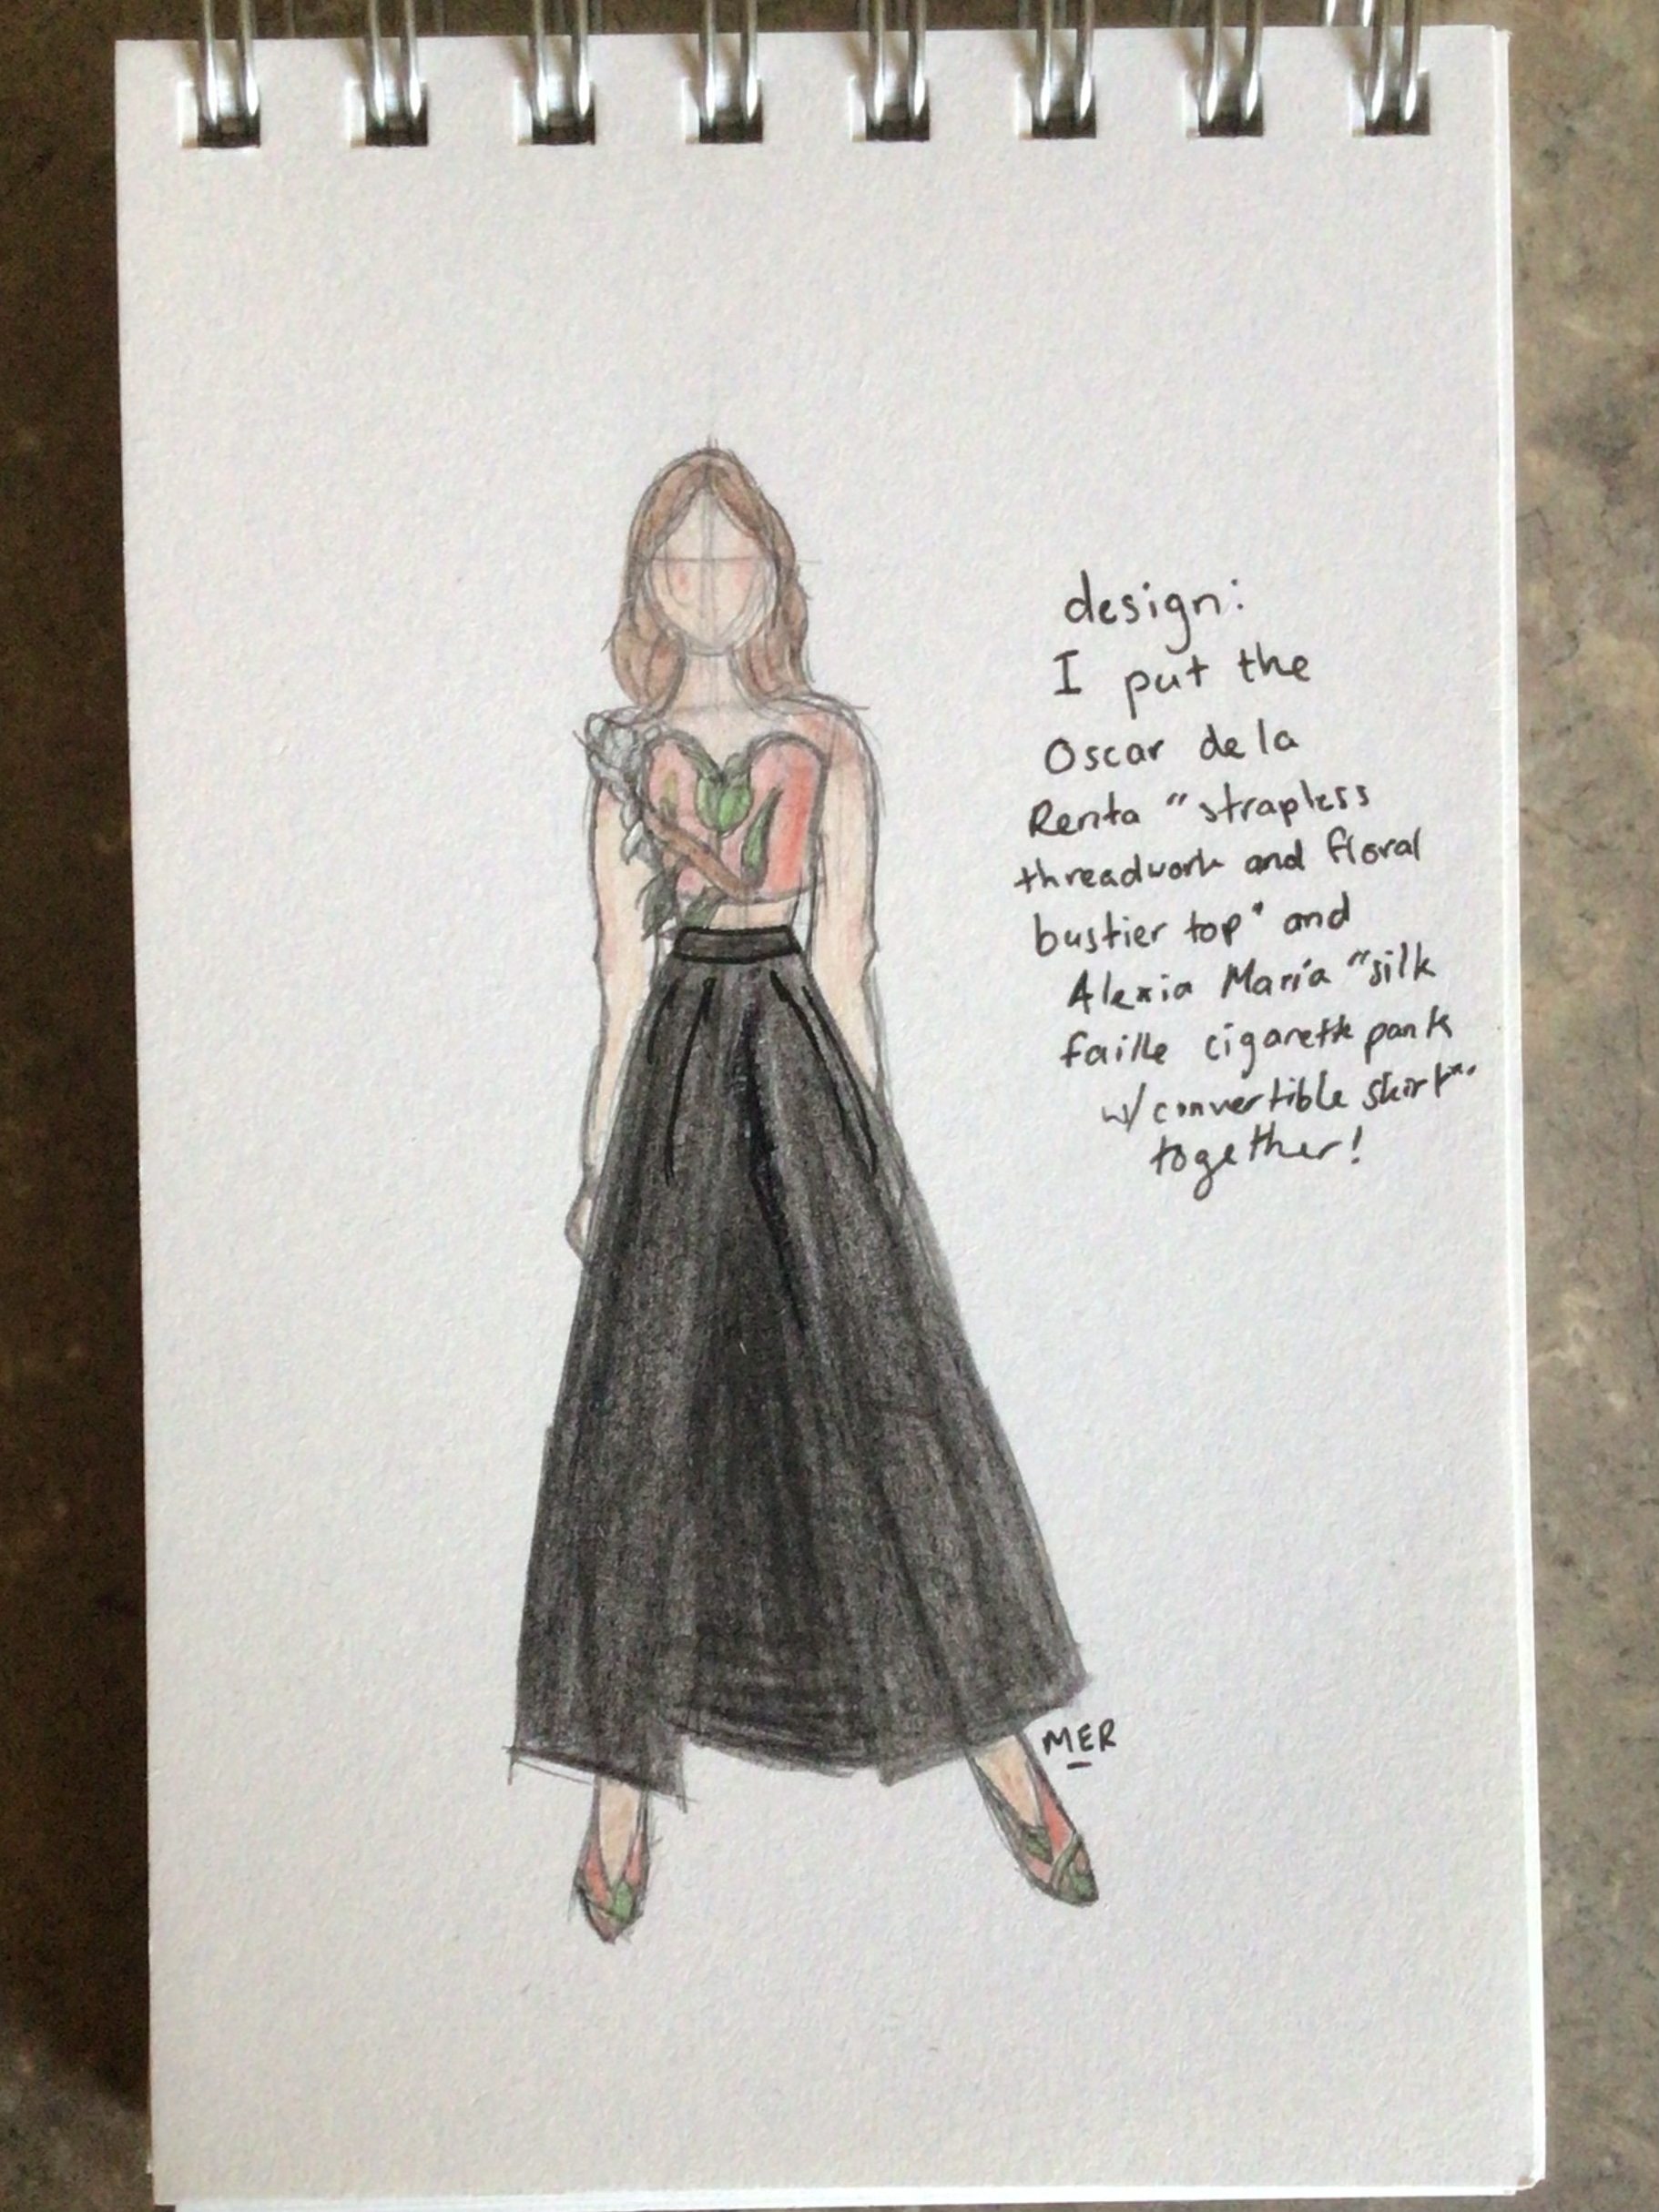 design:
I put the
Oscar de la
Renta "strapless
threadwork and floral
bustier top" and
Alexia María "silk
faille cigarette pants
w/ convertible skirt"
together!
MER